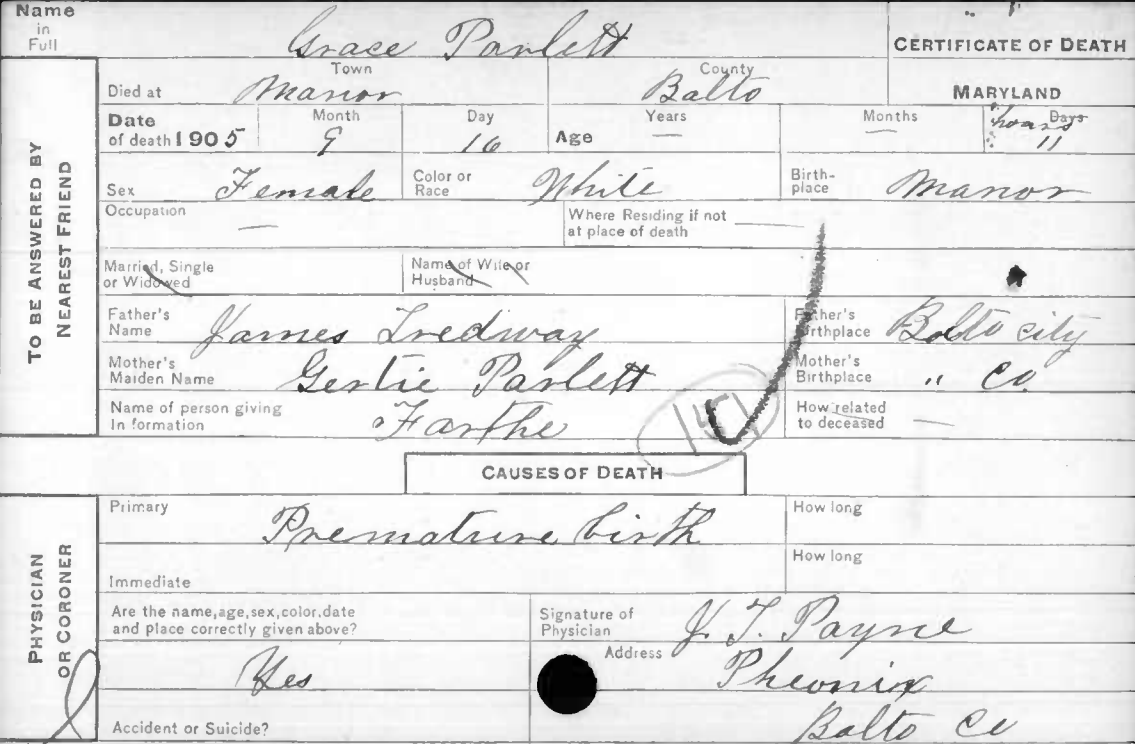 Name in Full Grace Parlett
CERTIFICATE OF DEATH
TO BE ANSWERED BY NEAREST FRIEND
Died at Town Manor County Balto MARYLAND
Date of death 1905 Month 9 Day 16 Age Years — Months — Days hours 11
Sex Female Color or Race White Birth-place Manor
Occupation — Where Residing if not at place of death —
Married, Single or Widowed Name of Wife or Husband
Father's Name James Tredway Father's Birthplace Balto City
Mother's Maiden Name Gertie Parlett Mother's Birthplace " Co.
Name of person giving In formation Farthe How related to deceased —
CAUSES OF DEATH
PHYSICIAN OR CORONER
Primary Premature birth How long
Immediate How long
Are the name,age,sex,color,date and place correctly given above? Yes
Signature of Physician J. T. Payne
Address Pheonix
Balto Co
Accident or Suicide?